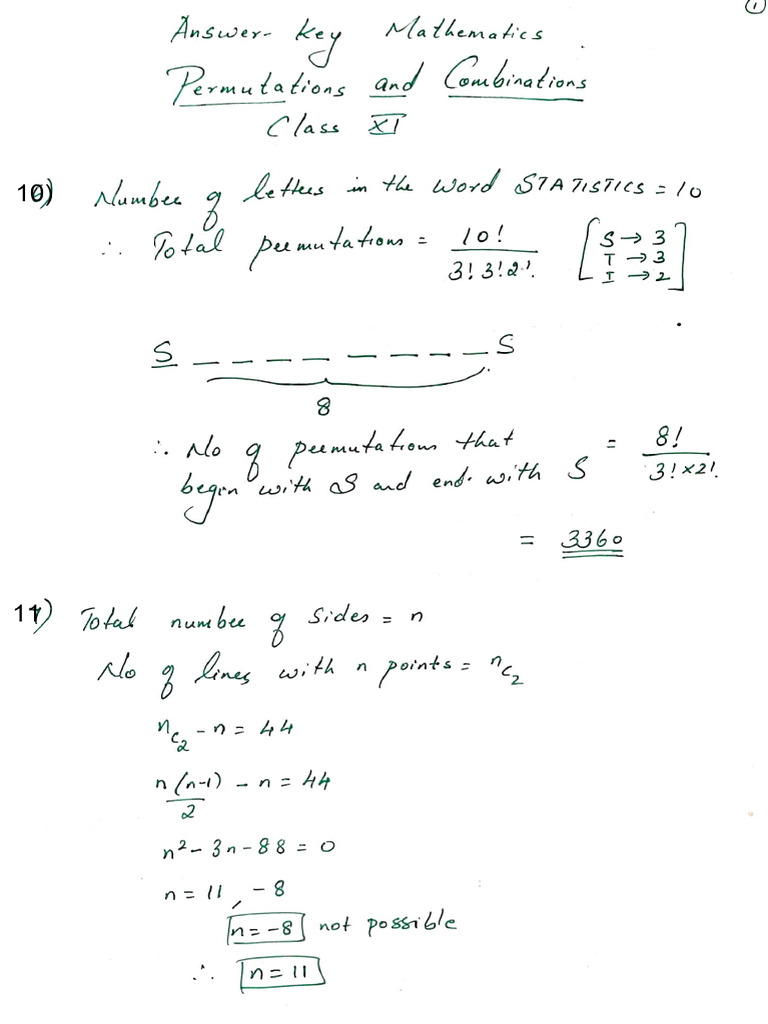 ①
Answer- key Mathematics
Permutations and Combinations
Class XI
10) Number of letters in the word STATISTICS = 10
∴ Total permutations = 10! / 3! 3! 2! [S → 3
T → 3
I → 2]
S _ _ _ _ _ _ _ _ S
8
∴ No of permutations that
begin with S and end with S = 8! / 3! × 2!
= 3360
11) Total number of sides = n
No of lines with n points = ⁿC₂
ⁿC₂ - n = 44
n(n-1) / 2 - n = 44
n² - 3n - 88 = 0
n = 11, -8
n = -8 not possible
∴ n = 11